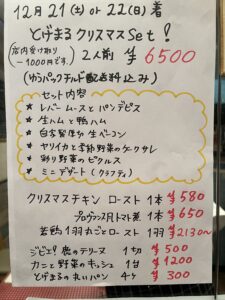 12月21(土) or 22(日)着
とげまる クリスマスSet!
(店内受け取り
－1000円です。) 2人前 ¥6500
(ゆうパックチルド配送料込み)
セット内容
★ レバームースとパンデピス
★ 生ハムと鴨ハム
★ 自家製厚切生ベーコン
★ ヤリイカと季節野菜のケークサレ
★ 彩り野菜のピクルス
★ ミニデザート (クラフティ)
クリスマスチキン ロースト 1本 ¥580
プロヴァンス風トマト煮 1本 ¥650
若鶏1羽丸ごとロースト 1羽 ¥2130〜
ジビエ! 鹿のテリーヌ 1切 ¥500
カニと野菜のキッシュ 1台 ¥1200
とげまるの丸いパン 4ヶ ¥300